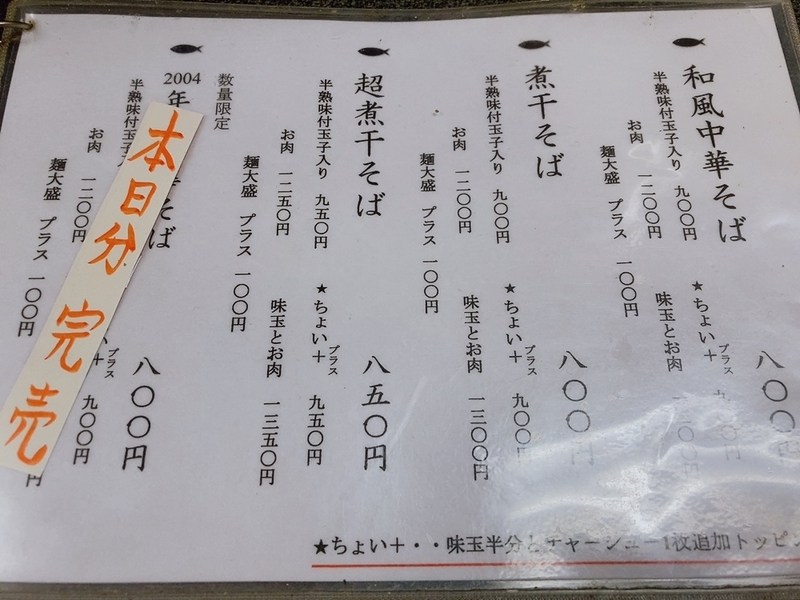 和風中華そば 八〇〇
半熟味付玉子入り 九〇〇円 ★ちょい＋プラス
お肉 一二〇〇円 味玉とお肉
麺大盛 プラス 一〇〇円
煮干そば 八〇〇円
半熟味付玉子入り 九〇〇円 ★ちょい＋プラス 九〇〇
お肉 一二〇〇円 味玉とお肉 一三〇〇円
麺大盛 プラス 一〇〇円
超煮干そば 八五〇円
半熟味付玉子入り 九五〇円 ★ちょい＋プラス 九五〇円
お肉 一二五〇円 味玉とお肉 一三五〇円
麺大盛 プラス 一〇〇円
数量限定
2004年 そば 八〇〇円
半熟味付玉子 プラス 九〇〇円
お肉 一二〇〇円 円
麺大盛 プラス 一〇〇円
本日分 完売
★ちょい＋・・味玉半分とチャーシュー1枚追加トッピン